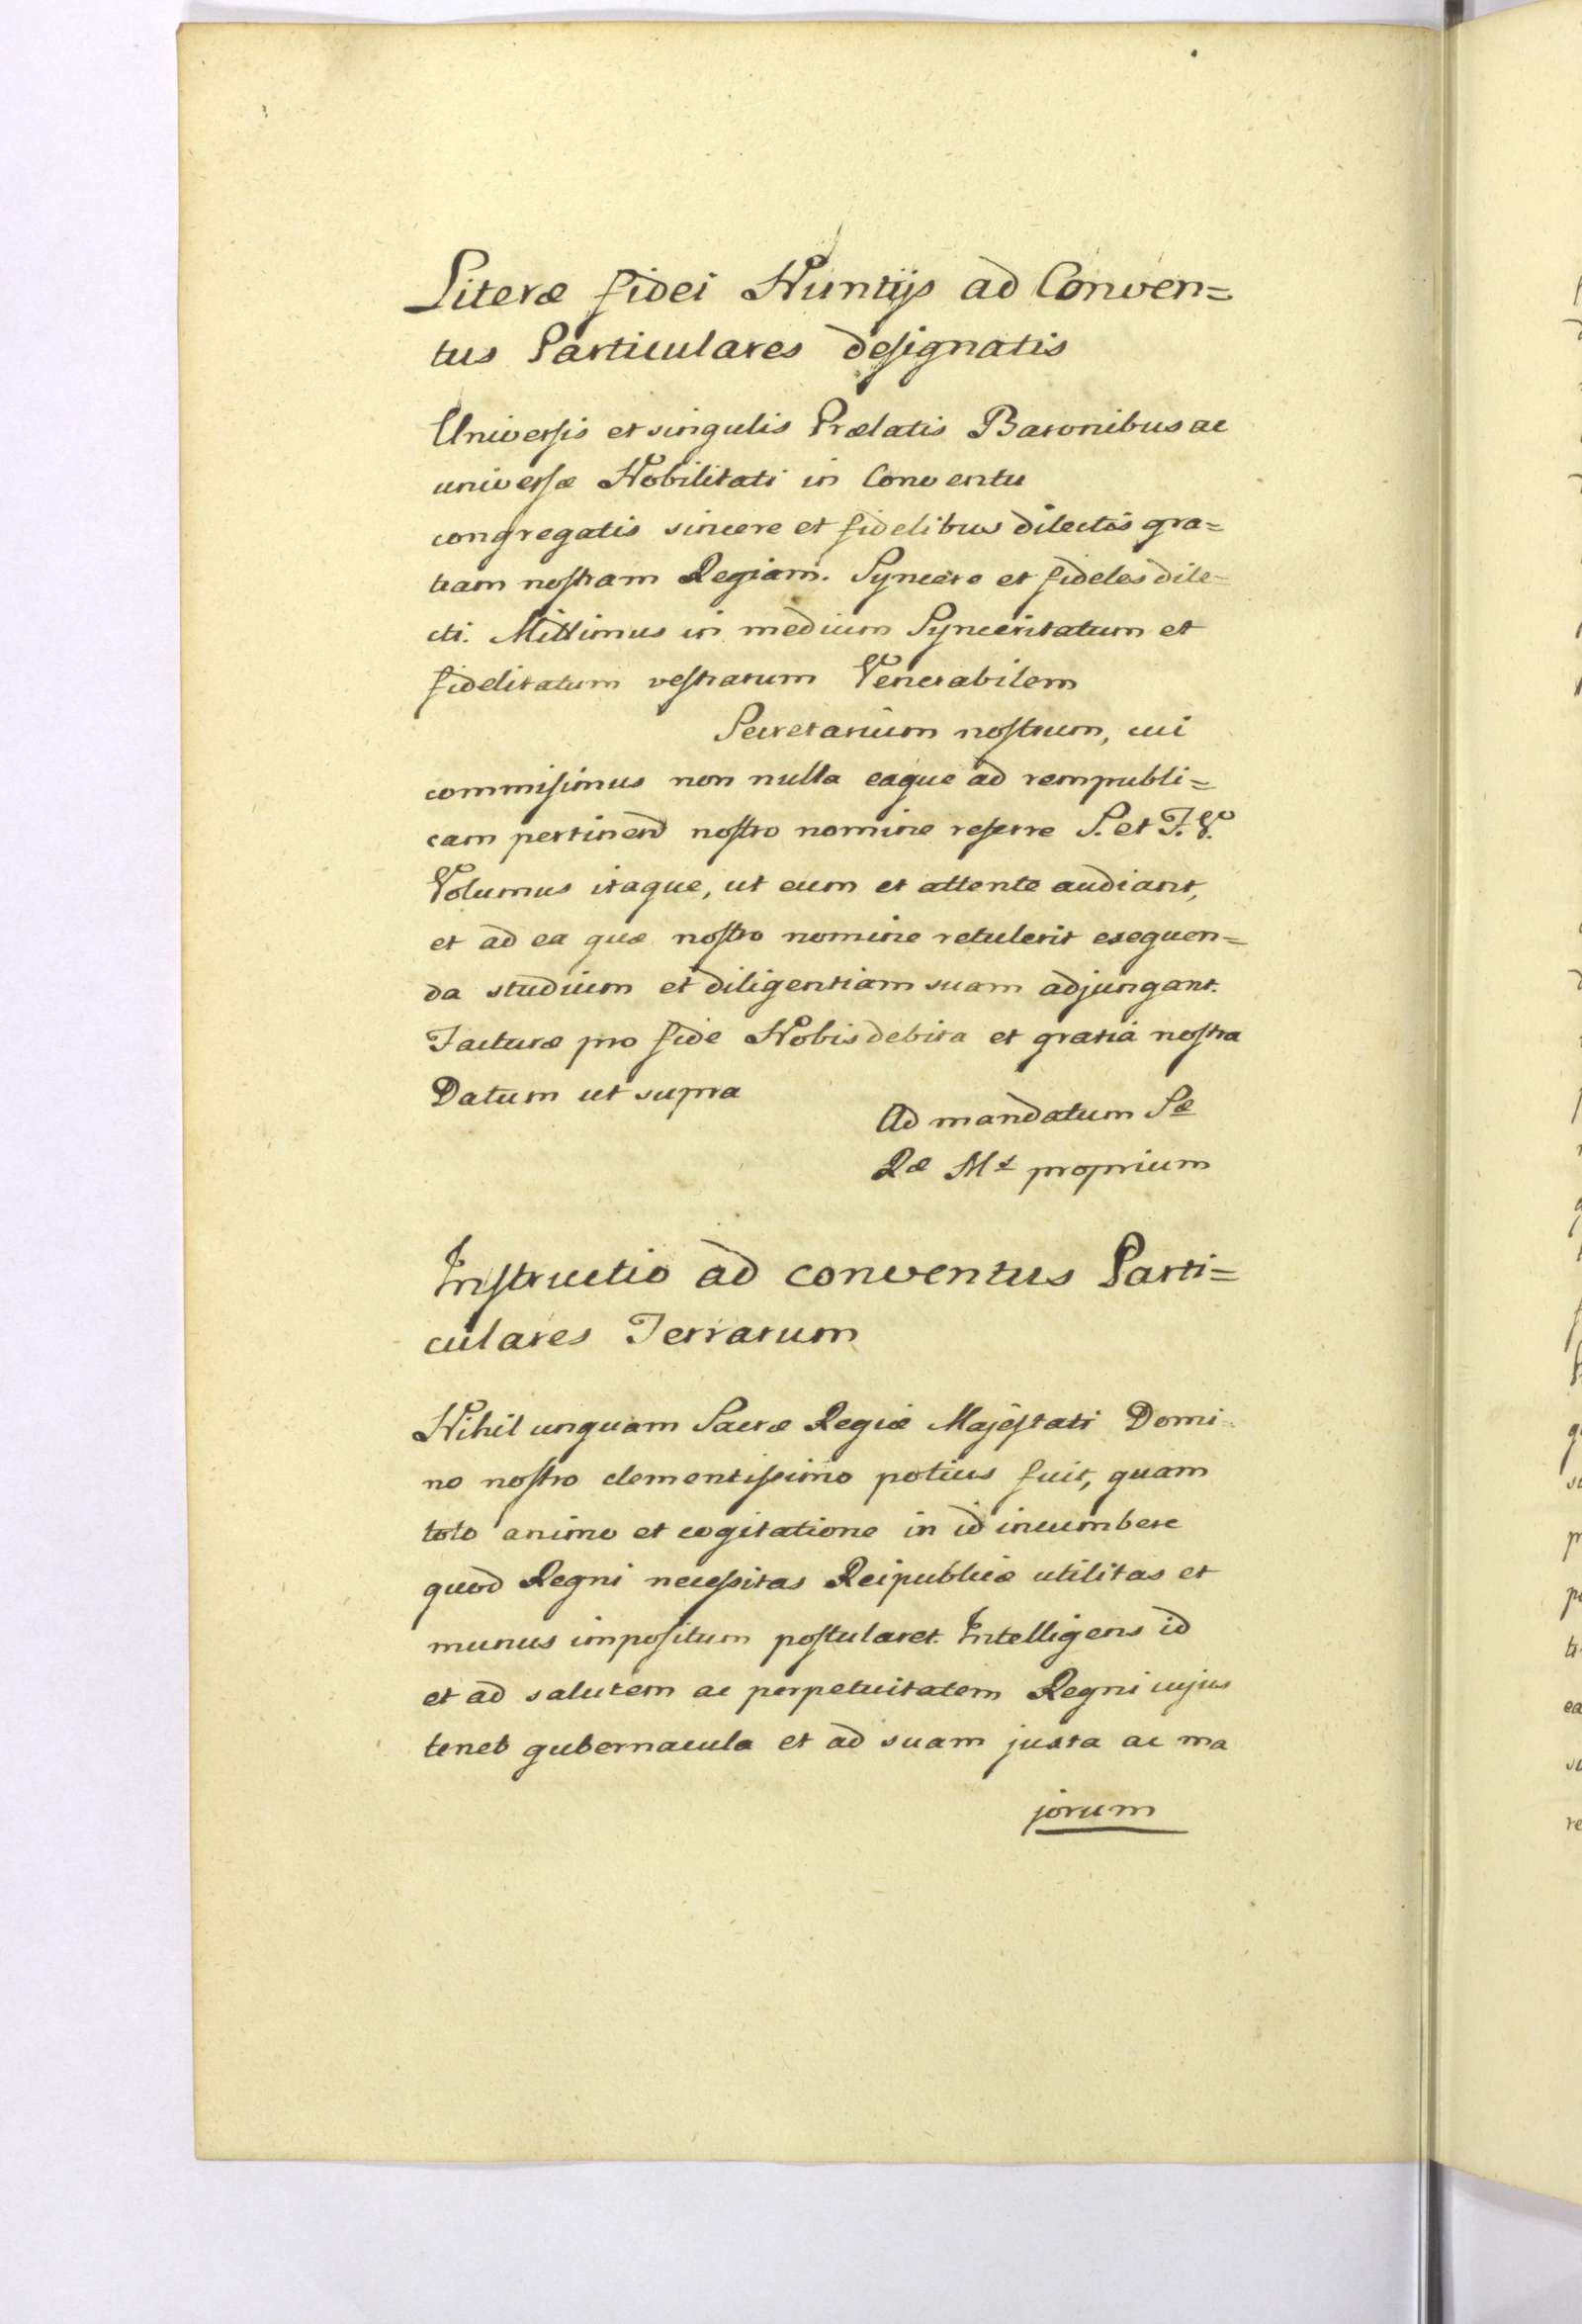 Literæ fidei Nuntijs ad Conven=
tus Particulares designatis
Universis et singulis Prælatis Baronibus ac
universæ Nobilitati in Conventu
congregatis sincere et fidelibus dilectis gra=
tiam nostram Regiam. Syncere et fideles dile=
cti. Mittimus in medium Synceritatum et
fidelitatum vestrarum Venerabilem
Secretarium nostrum, cui
commisimus non nulla eaque ad rempubli=
cam pertinend nostro nomine referre S. et F. V.
Volumus itaque, ut eum et attente audiant,
et ad ea quæ nostro nomine retulerit exequen=
da studium et diligentiam suam adjungant.
Facturæ pro fide Nobis debita et gratiá nostra
Datum ut supra
Ad mandatum Sæ
Ræ Mt proprium
Instructio ad conventus Parti=
culares Terrarum
Nihil unquam Sacræ Regiæ Majestati Domi=
no nostro clementissimo potius fuit, quam
toto animo et cogitatione in id incumbere
quod Regni necessitas Reipublicæ utilitas et
munus impositum postularet. Intelligens id
et ad salutem ac perpetuitatem Regni cujus
tenet gubernacula et ad suam juxta ac ma
jorum